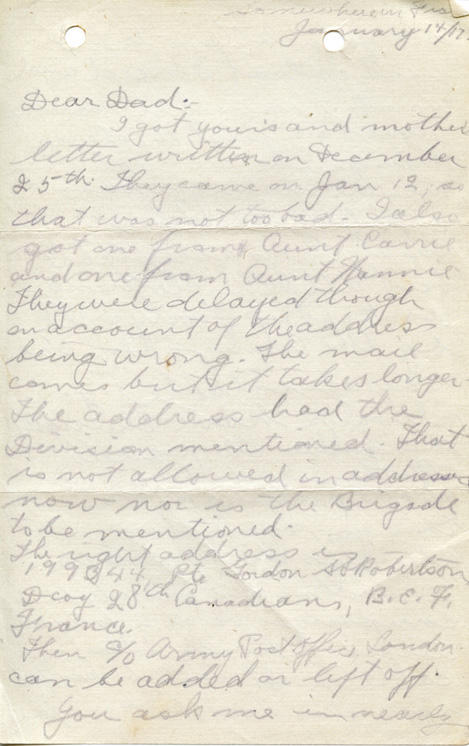 Somewhere in
January 14/17
Dear Dad:-
I got yours and mother
letter written on December
25th. They came on Jan 12, so
that was not too bad. I also
got one from Aunt Carrie
and one from Aunt Nannie
They were delayed though
on account of the address
being wrong. The mail
comes but it takes longer
The address had the
Division mentioned. That
is not allowed in address
now nor is the Brigade
to be mentioned.
The right address is
Pte Gordon Robertson
D coy 28th Canadians, B.E.F.
France.
Then c/o Army Post Office, London
can be added or left off.
You ask me in nearly